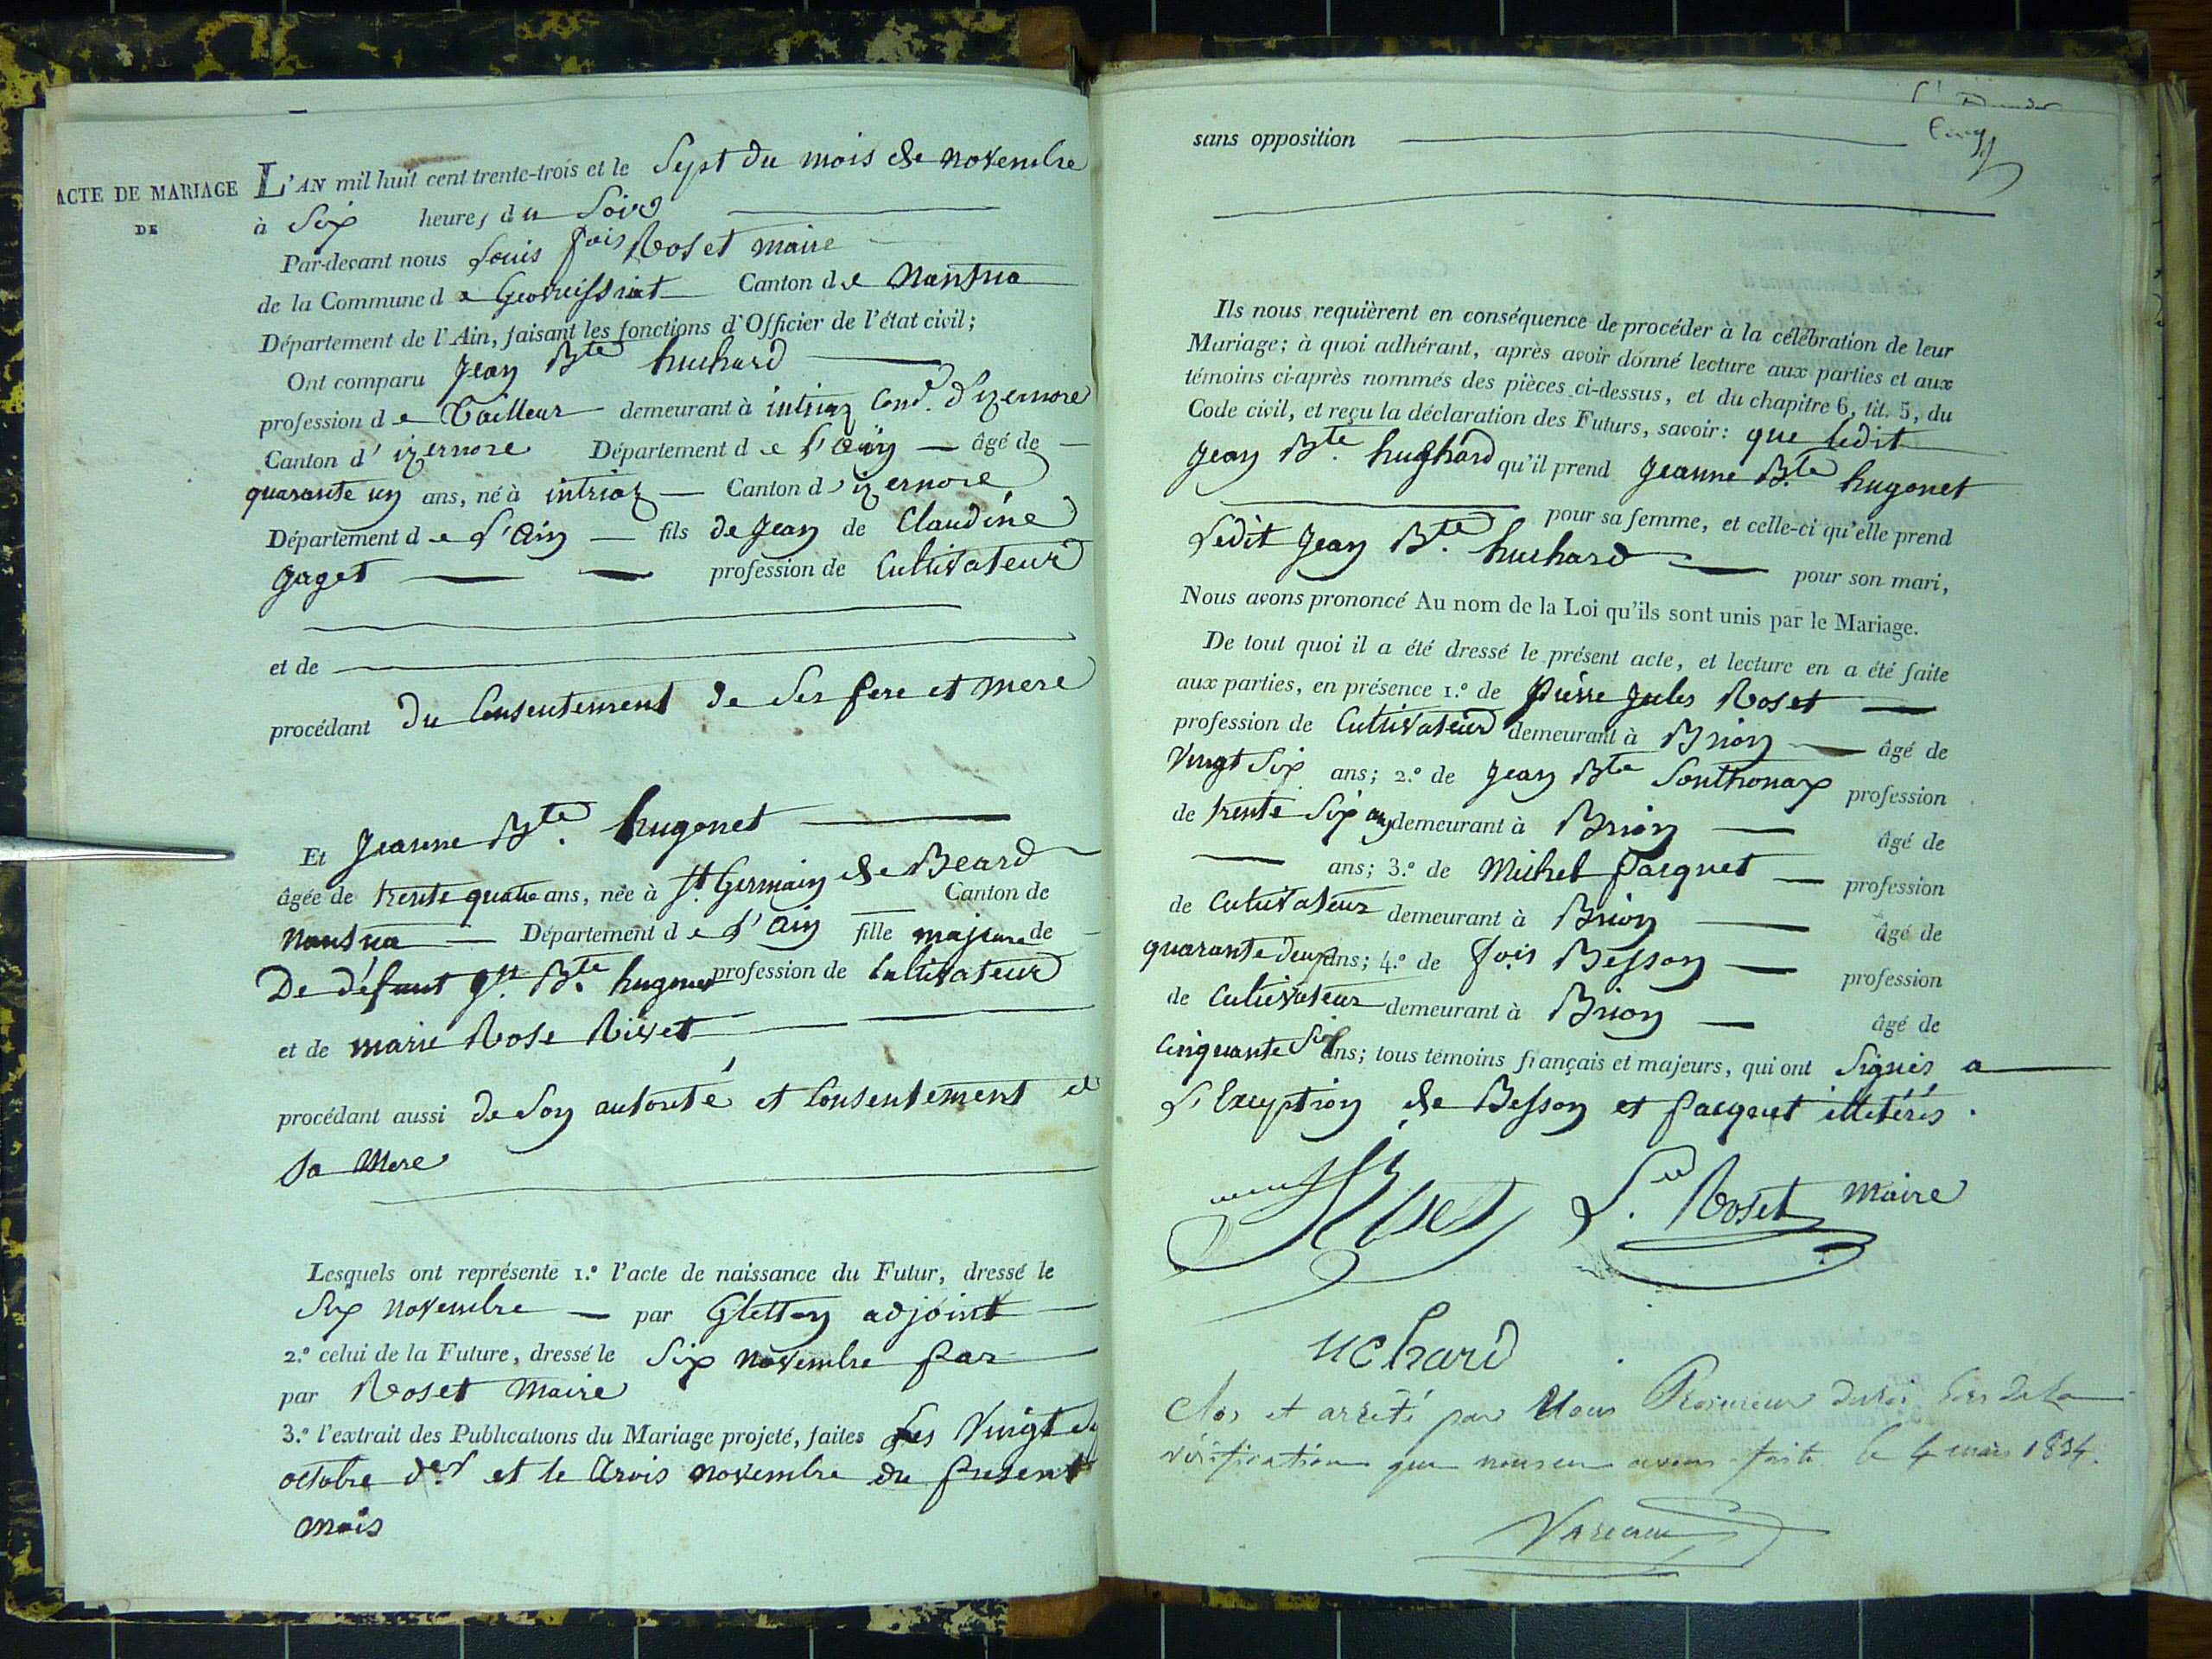 ACTE DE MARIAGE
DE
L'AN mil huit cent trente-trois et le Sept du mois de novembre
à Six heures du Soir
Par-devant nous Louis fois Roset maire
de la Commune de Geovreissiat Canton de Nantua
Département de l'Ain, faisant les fonctions d'Officier de l'état civil;
Ont comparu Jean Bte huchard
profession de Tailleur demeurant à intriaz d'izernore
Canton d'izernore Département de l'ain âgé de
quarante un ans, né à intriaz Canton d'izernore
Département de l'ain fils de Jean de Claudine
goget profession de Cultivateur
et de
procédant du Consentement de Ses pere et mere
Et Jeanne Bte hugonet
âgée de trente quatre ans, née à St Germain de Beard
Canton de
Nantua Département de l'ain fille majeure de
De défunt Jn Bte hugonet profession de Cultivateur
et de marie Rose Rivet
procédant aussi de Son autorité et Consentement de
Sa Mere
Lesquels ont représenté 1.º l'acte de naissance du Futur, dressé le
Six novembre par Gletton adjoint
2.º celui de la Future, dressé le Six novembre par
par Roset Maire
3.º l'extrait des Publications du Mariage projeté, faites Les Vingt
octobre der et le trois novembre du present
mois
Cinq
sans opposition
Ils nous requièrent en conséquence de procéder à la célébration de leur
Mariage; à quoi adhérant, après avoir donné lecture aux parties et aux
témoins ci-après nommés des pièces ci-dessus, et du chapitre 6, tit. 5, du
Code civil, et reçu la déclaration des Futurs, savoir: que ledit
Jean Bte hughard qu'il prend Jeanne Bte hugonet
pour sa femme, et celle-ci qu'elle prend
Ledit Jean Bte huchard pour son mari,
Nous avons prononcé Au nom de la Loi qu'ils sont unis par le Mariage.
De tout quoi il a été dressé le présent acte, et lecture en a été faite
aux parties, en présence 1.º de Pierre Jules Roset
profession de Cultivateur demeurant à Brion âgé de
Vingt Six ans; 2.º de Jean Bte Sonthonax profession
de trente Six an demeurant à Brion âgé de
ans; 3.º de Michel Pacquet profession
de Cultivateur demeurant à Brion âgé de
quarante deux ans; 4.º de fois Besson profession
de Cultivateur demeurant à Brion âgé de
Cinquante Six ans; tous témoins français et majeurs, qui ont Signés a
L'Exception de Besson et Pacquet illitérés.
Roset L. Roset maire
uchard
Clos et arrêté par Nous Procureur du roi lors de la
vérification que nous en avons faite le 4 mars 1834.